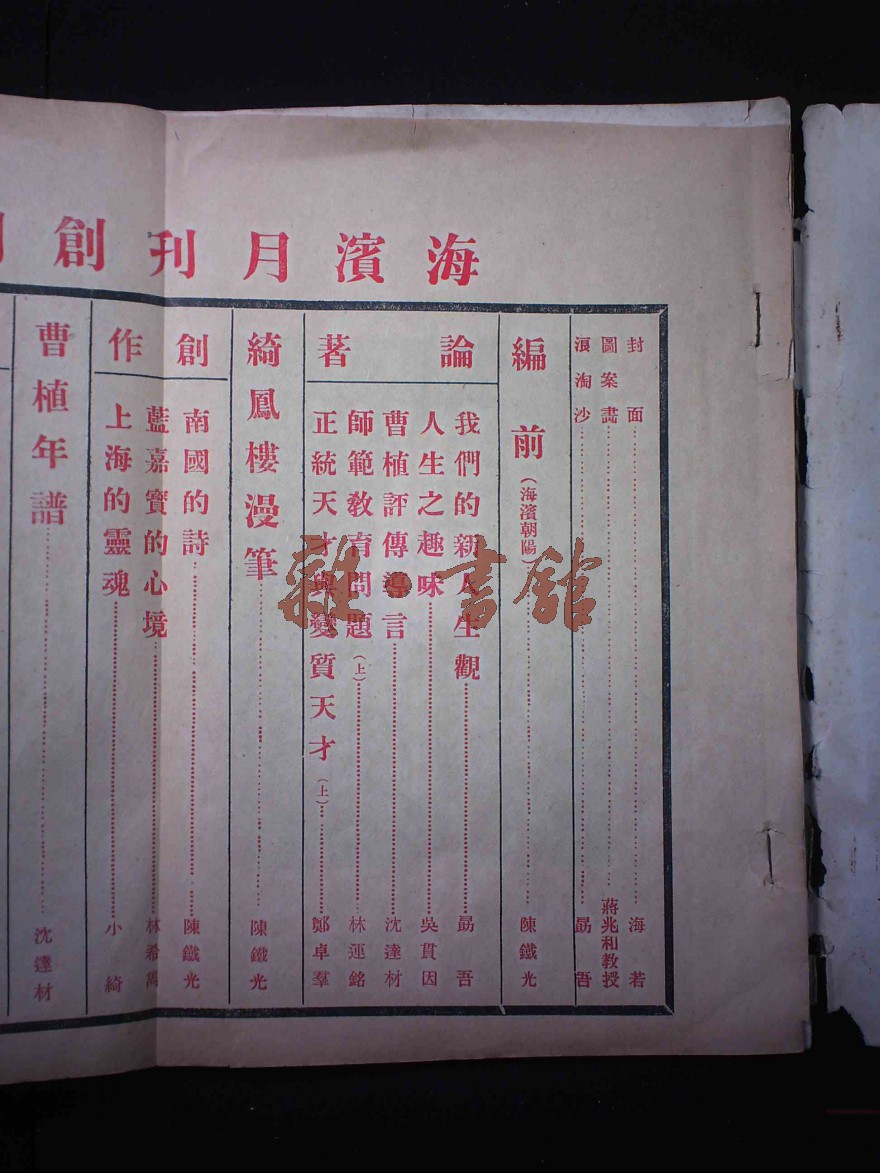 海濱月刊創
封面 海若
圖案畫 蔣兆和教授
浪淘沙 勗吾
編前(海濱朝陽) 陳鐵光
論著
我們的新人生觀 勗吾
人生之趣味 吳貫因
曹植評傳導言 沈達材
師範教育問題(上) 林運銘
正統天才與變質天才(上) 鄭卓羣
綺鳳樓漫筆 陳鐵光
創作
南國的詩 陳鐵光
藍嘉寶的心境 林希
上海的靈魂 小綺
曹植年譜 沈達材
雜·書館